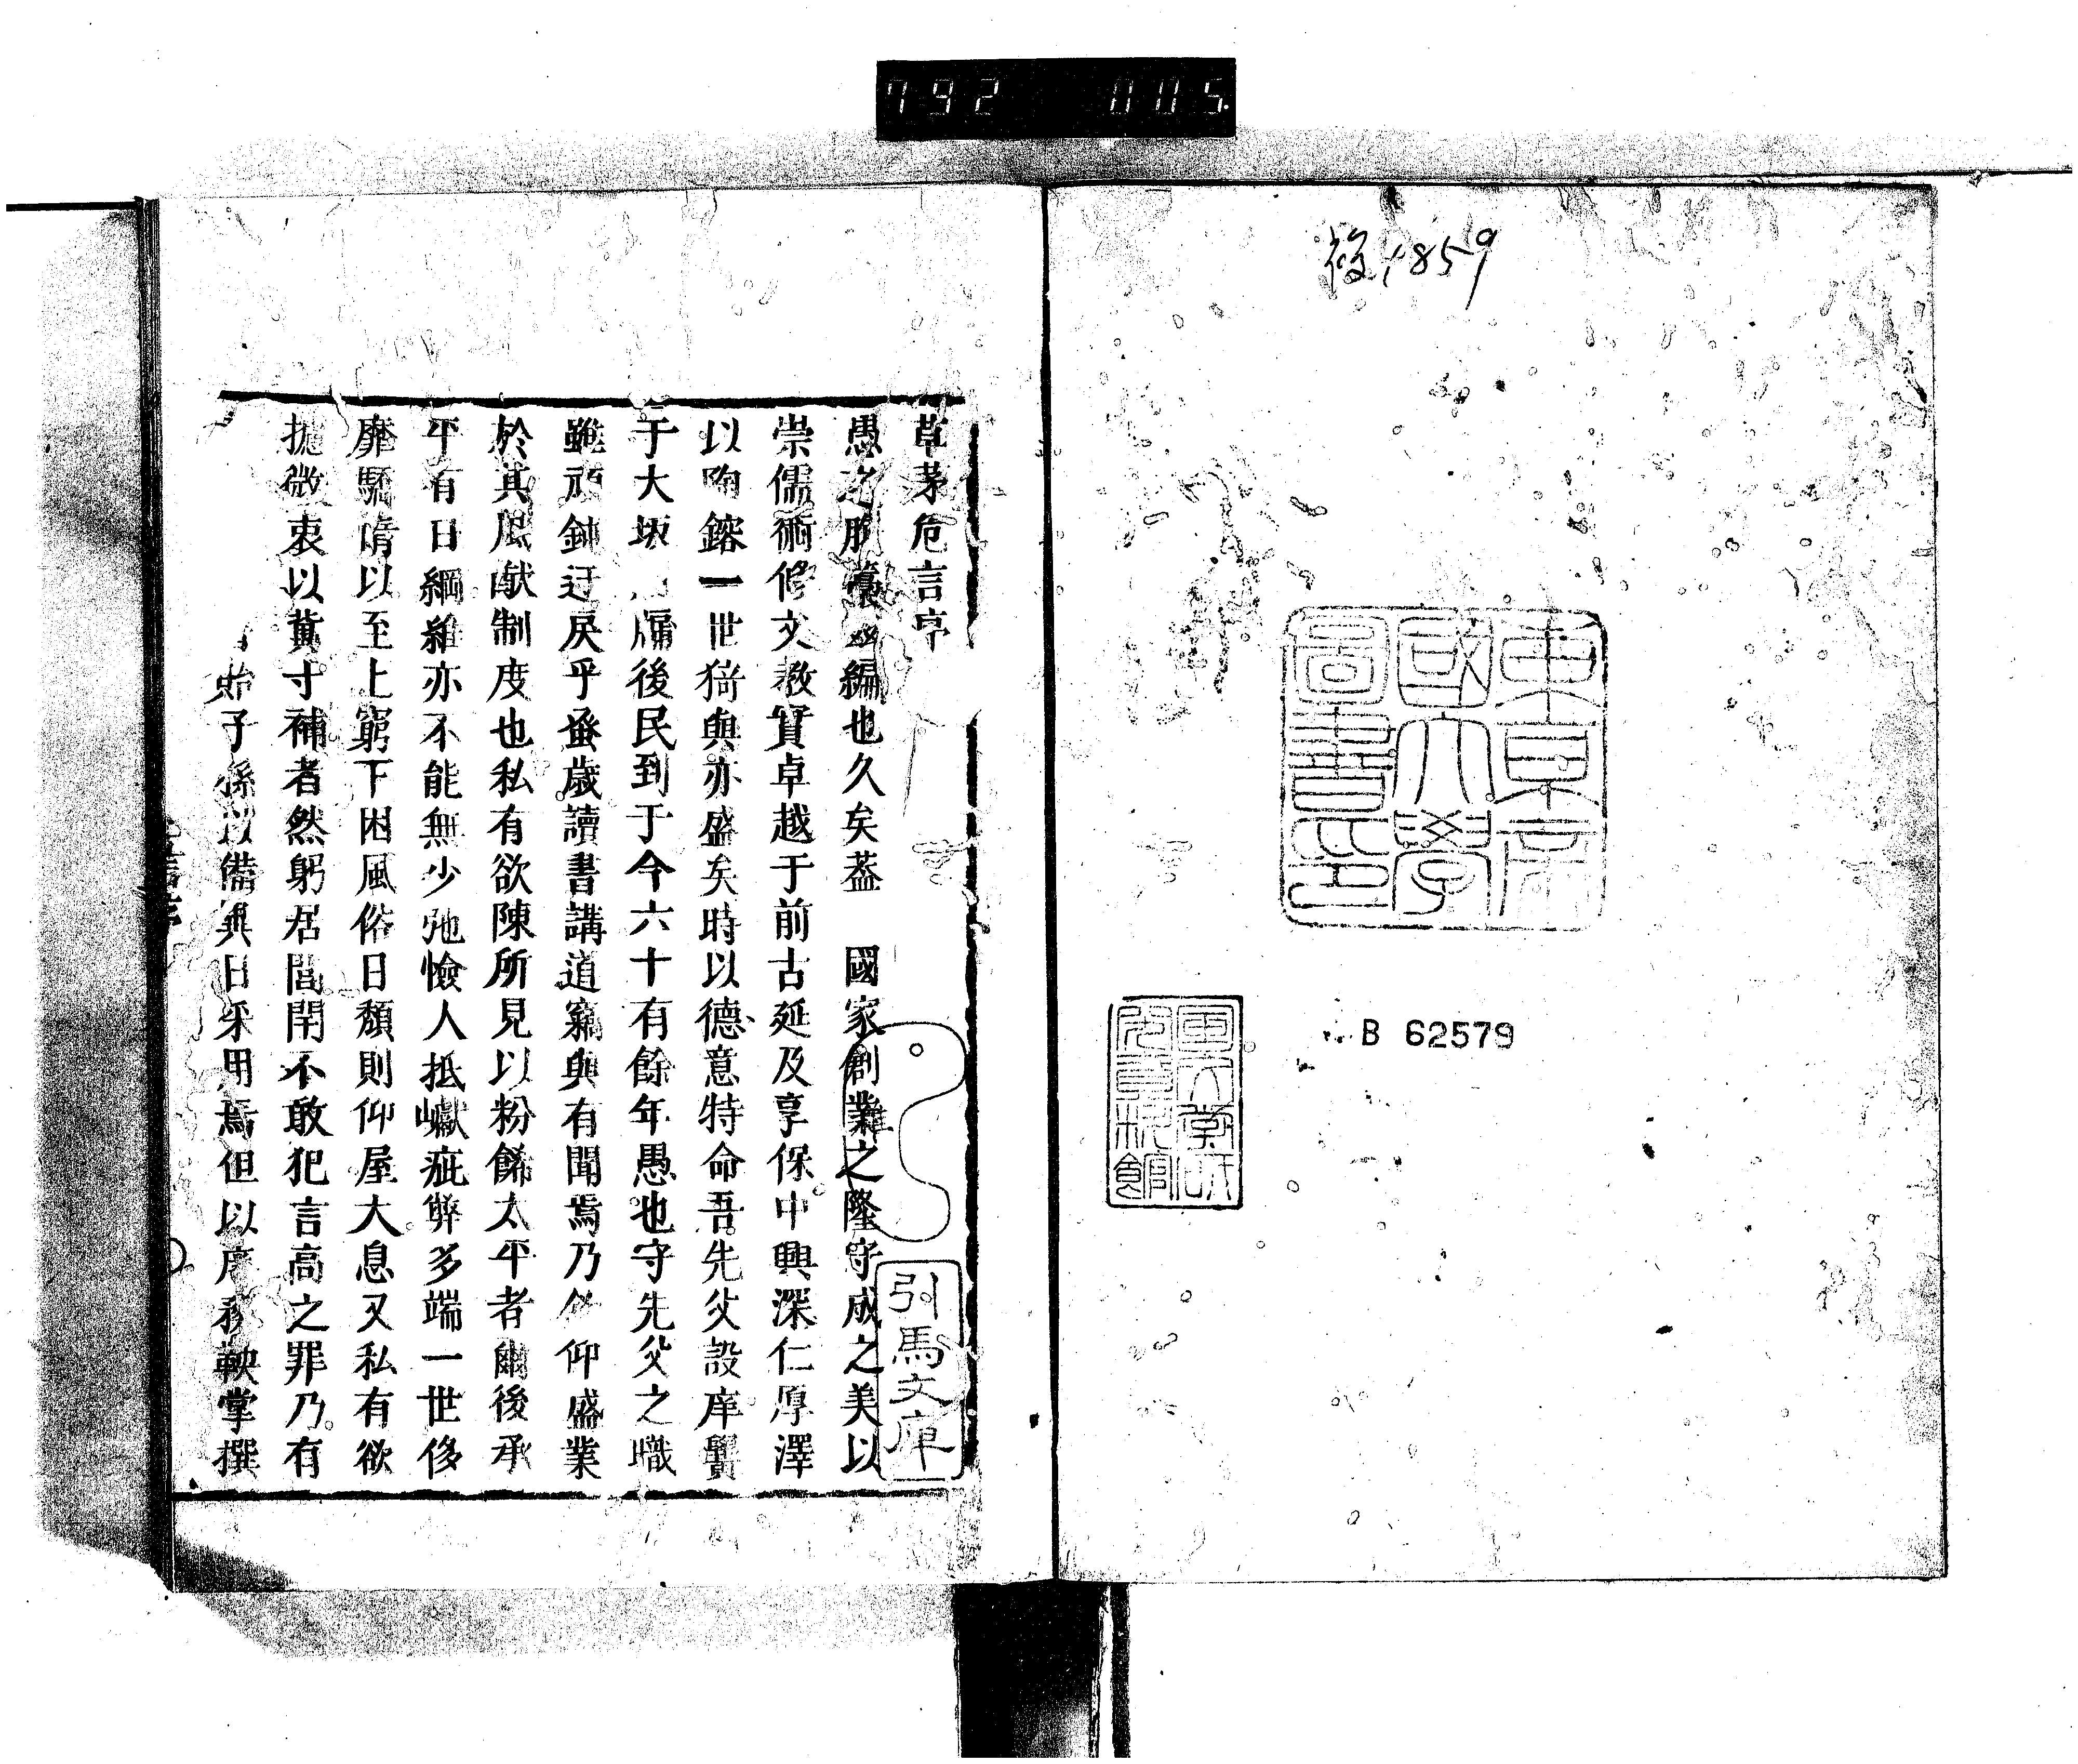 792 005
1859
東京帝
國大學
圖書印
B 62579
草茅危言序
愚之腹藁此編也久矣葢 國家創業之隆守成之美以
崇儒術修文教實卓越于前古延及享保中興深仁厚澤
以陶鎔一世猗與亦盛矣時以德意特命吾先父設庠黌
于大坂 牖後民到于今六十有餘年愚也守先父之職
雖頑鈍迂戾乎蚤歲讀書講道竊與有聞焉乃 仰盛業
於其風猷制度也私有欲陳所見以粉餙太平者爾後承
平有日綱維亦不能無少弛憸人抵巇疵弊多端一世侈
靡驕惰以至上窮下困風俗日頹則仰屋大息又私有欲
攄微衷以冀寸補者然躬居閭閈不敢犯言高之罪乃有
貽子孫以備異日采用焉但以庠務鞅掌撰
引馬文庫